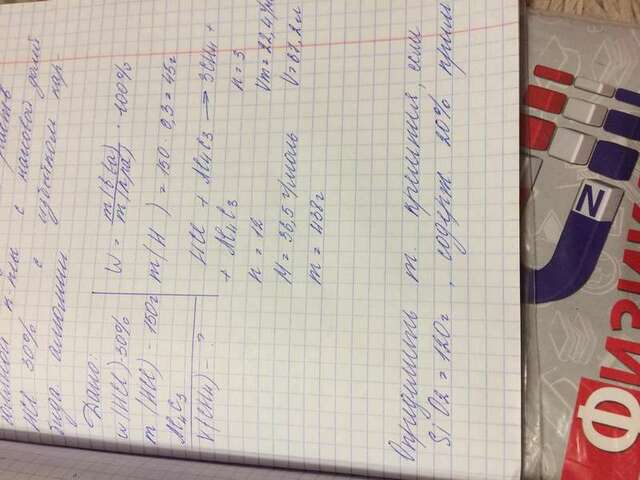 соляной к-ты с массовой долей
HCl 30% с избытком кар-
бида алюмин
Дано:
w(HCl)-30%
m (HCl) - 150г
Al4C3
V(CH4) - ?
W = m(в.ва)/m(р.ра) · 100%
m(H ) = 150 · 0,3 = 45г
HCl + Al4C3 → 3CH4 +
+ Al4C3
n = 12
M = 36,5 г/моль
m = 438г
n = 3
Vm = 22,4 л/м
V = 67,2л
Определить m. кремния, если
SiO2 = 120г, содерж. 20% прим
N
ФИЗИК